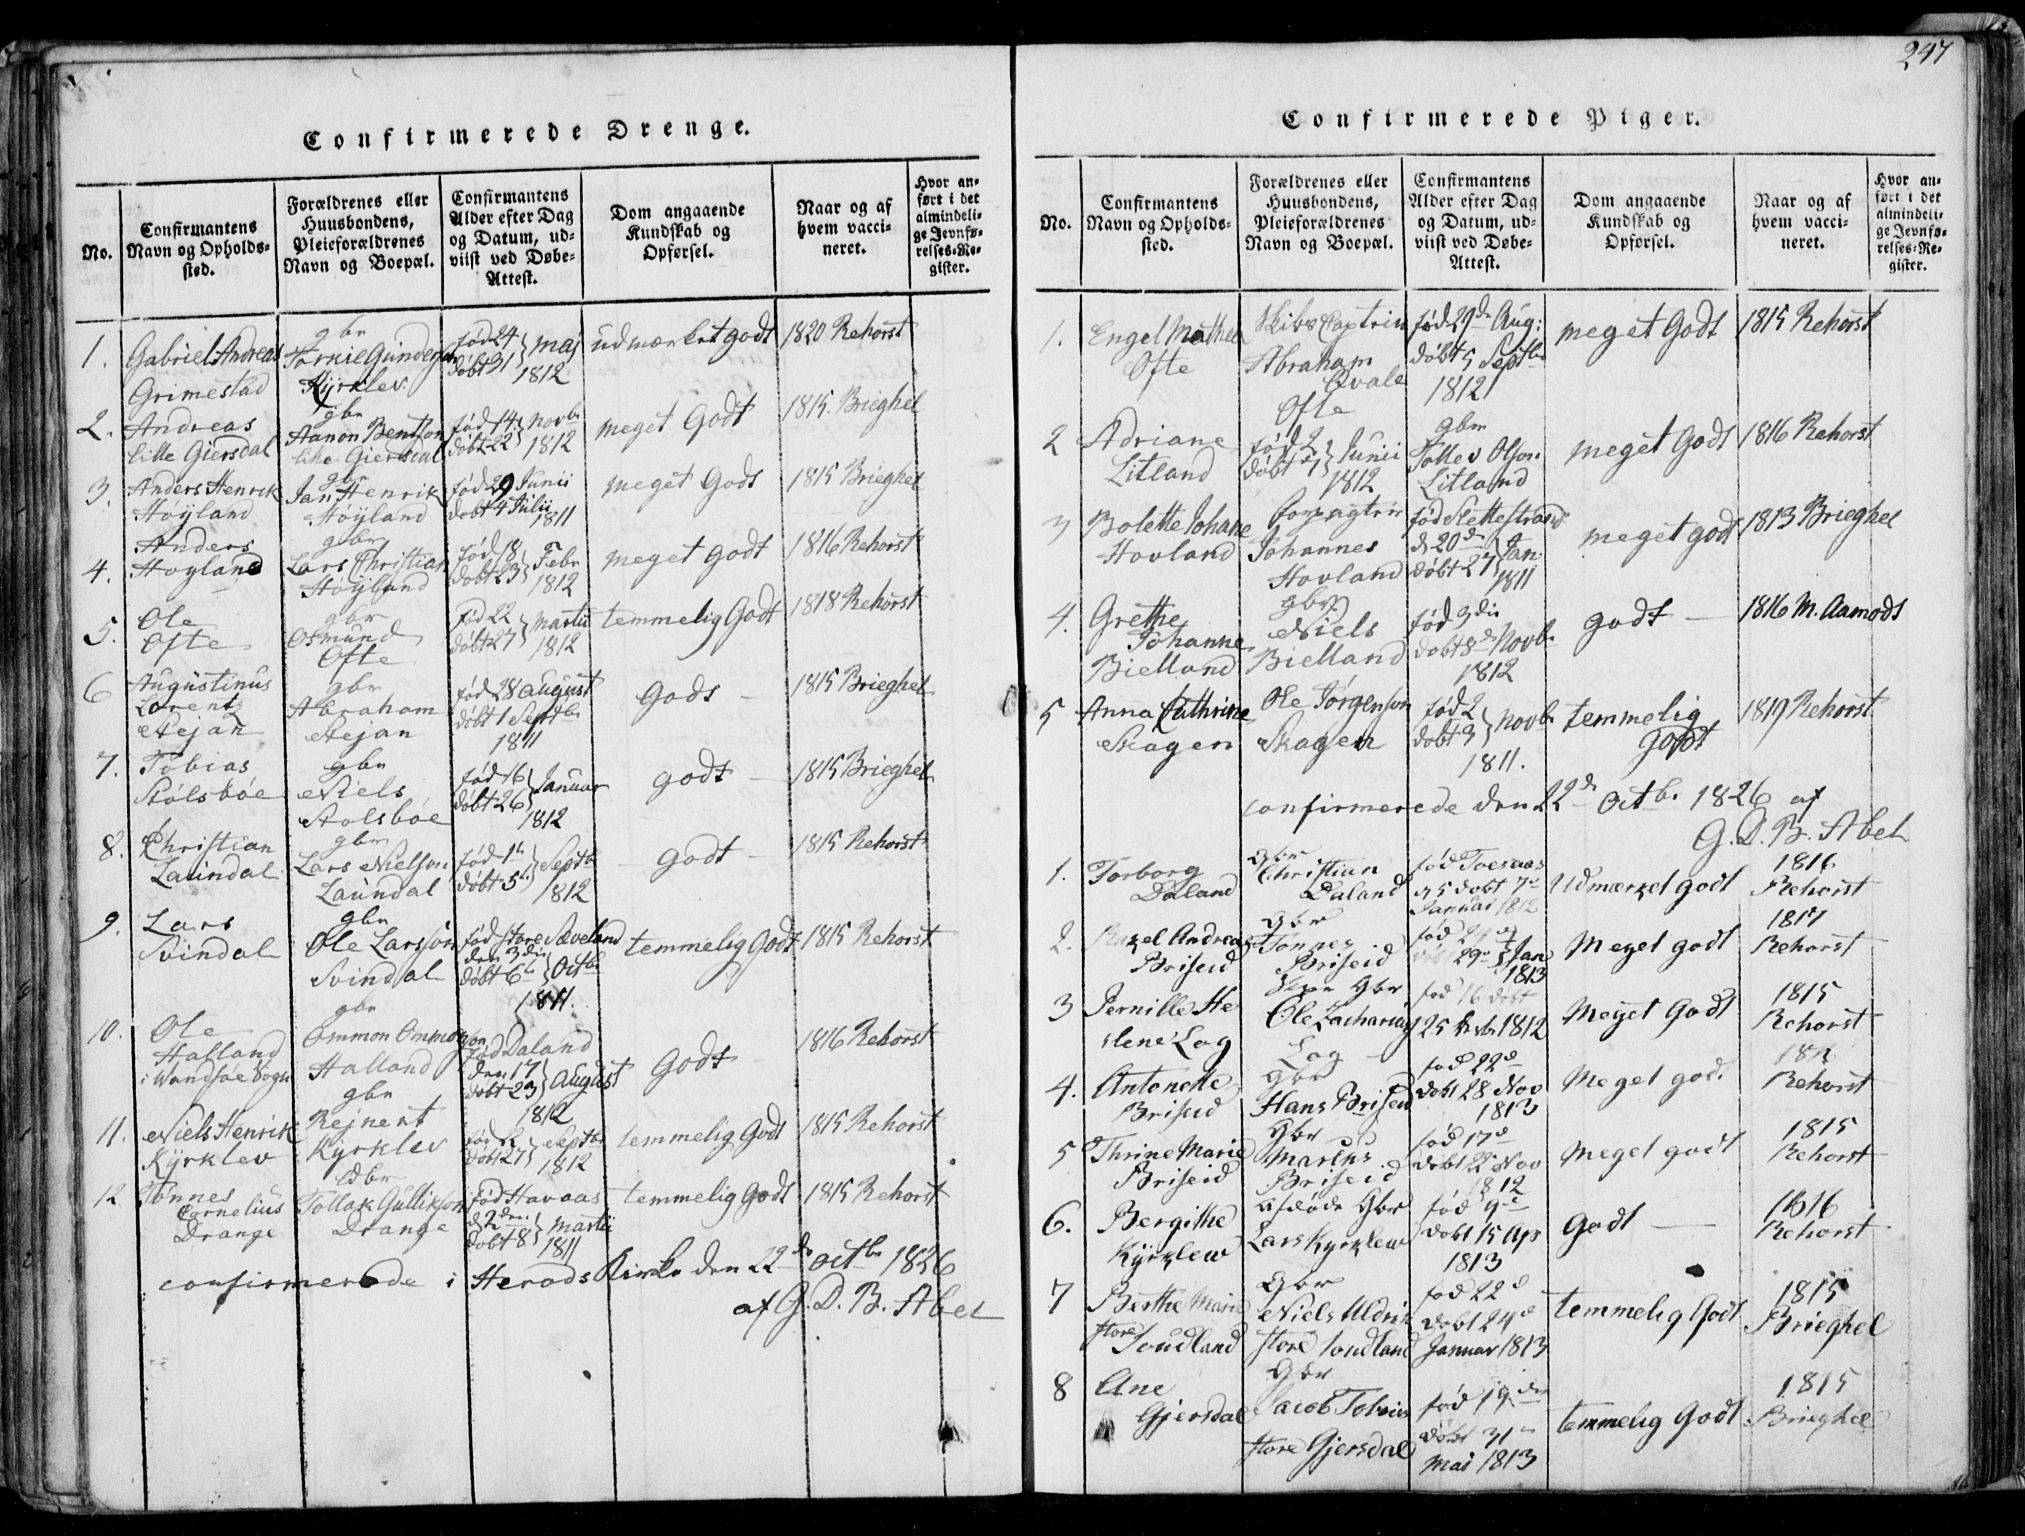 247
Confirmerede Drenge.
No.
Confirmantens Navn og Opholds-sted.
Forældrenes eller Huusbondens, Pleieforældrenes Navn og Boepæl.
Confirmantens Alder efter Dag og Datum, ud-viist ved Døbe-Attest.
Dom angaaende Kundskab og Opførsel.
Naar og af hvem vacci-neret.
Hvor an-ført i det almindeli-ge Jevnfø-relses-Re-gister.
1. Gabriel Andreas Grimestad gbr Kÿrklev født 24 døbt 31 maj 1812 udmærket godt 1820 Rehorst
2. Andreas Lille Giersdal gbr Aanon Bentson Lille Giersdal fød 14 døbt 22 novbr 1812 meget Godt 1815 Brieghel
3. Anders Henrik Høÿland gbr Jan Henrik Høÿland fød 29 Junii døbt 4 Julii 1811 meget Gods 1815 Brieghel
4. Anders Høyland gbr Lars Christian Høÿland fød 18 døbt 23 Febr 1812 meget Godt 1816 Rehorst
5. Ole Ofte gbr Osmund Ofte fød 22 døbt 27 Martii 1812 temmelig Godt 1818 Rehorst
6 Augustinus Lorentz Stejan gbr Abraham Stejan fød 28 august døbt 1 Septbr 1811 Gods 1815 Brieghel
7. Tobias Stølsbøe gbr Niels Stølsbøe fød 16 døbt 26 Januar 1812 godt 1815 Brieghel
8. Christian Laundal gbr Lars Nielson Laundal fød 1 døbt 5 Septbr 1812 godt 1815 Rehorst
9. Lars Svindal gbr Ole Larsson Svindal fød store Sæveland den 3die døbt 6 Octbr 1811. temmelig Godt 1815 Rehorst
10. Ole Halland i Wandsøe Sogn gbr Ommon Ommonson Halland fød Daland den 17 døbt 23 August 1812 Godt 1816 Rehorst
11. Niels Henrik Kÿrklev gbr Rejnert Kÿrklev døbt 27 Septbr 1812 temmelig Godt 1815 Rehorst
12 Tønnes Cornelius Drange gbr Tollak Gullikson Drange fød Havaas d 2den døbt 8 Martii 1811 temmelig Godt 1815 Rehorst
confirmerede i Herads Kirke den 22de octbr 1826
af G. D. B. Abel
Confirmerede Piger.
No.
Confirmantens Navn og Opholds-sted.
Forældrenes eller Huusbondens, Pleieforældrenes Navn og Boepæl.
Confirmantens Alder efter Dag og Datum, ud-viist ved Døbe-Attest.
Dom angaaende Kundskab og Opførsel.
Naar og af hvem vacci-neret.
Hvor an-ført i det almindeli-ge Jevnfø-relses-Re-gister.
1. Engel Mathea Ofte Skibs Captein Abraham Qvale Ofte fød 29de Aug: døbt 5 Septbr 1812 meget Godt 1815 Rehorst
2 Adriane Litland fød 2 døbt 7 Junii 1812 gbr Tollev Olson Litland meget Godt 1816 Rehorst
3 Bolette Johane Hovland Forpagter Johannes Hovland fød Slettestrand d 20de døbt 27 Jan: 1811 meget godt 1813 Brieghel
4. Grethe Johanne Bielland gbr Niels Bielland fød 3die døbt 8de Novbr 1812 godt 1816 M. Aamods
5 Anna Cathrine Skagen Ole Jørgenson Skagen fød 2 døbt 3 Novbr 1811. temmelig Godt 1819 Rehorst
confirmerede den 22de Octbr 1826 af
G. D. B. Abel
1. Torborg Daland Gbr Christian Daland d 5 døbt 7de Januar 1812 Udmærket godt 1816 Rehorst
2. Andrea Briseid Gbr Tønnes Briseid 29de Jan 1813 Meget godt 1817 Rehorst
3 Pernille Helene Lag Gbr Ole Zacharias Lag fød 16 døbt 25 1812 Meget Godt 1815 Rehorst
4. Antonette Briseid Gbr Hans Briseid fød 22d døbt 28 Nov 1813 Meget godt Rehorst
5 Thrine Marie Briseid Gbr Marcus Briseid fød 17d døbt 22 Nov 1812 Meget godt 1815 Rehorst
6. Bergithe Kÿrklew afdøde Gbr Lars Kyrklew fød 9de døbt 15 Ap 1813 Godt 1816 Rehorst
7 Berthe Marie store Loudland Gbr Niels Uldrik store Loudland fød 22d døbt 24d Januar 1813 temmelig Godt 1815 Brieghel
8 Ane Gjersdal Gbr Jacob Tobias store Gjersdal fød 19den døbt 31te Mai 1813 temmelig Godt 1815 Brieghel